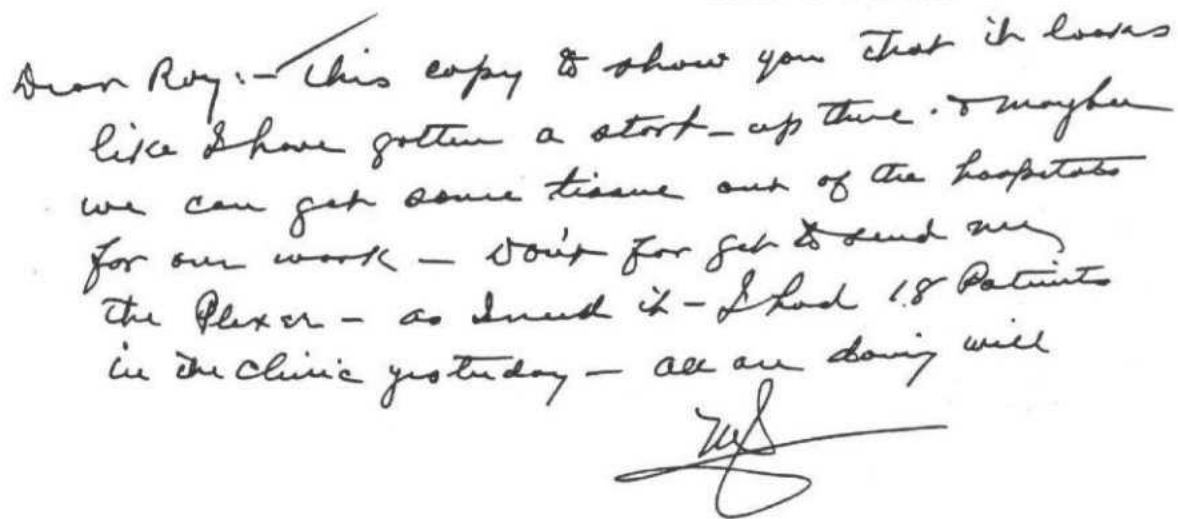 Dear Roy:- This copy to show you that it looks
like I have gotten a start-up there. & maybe
we can get some tissue out of the hospitals
for our work - Don't for get to send me
the Plexer - as I need it - I had 18 Patients
in the clinic yesterday - all are doing well